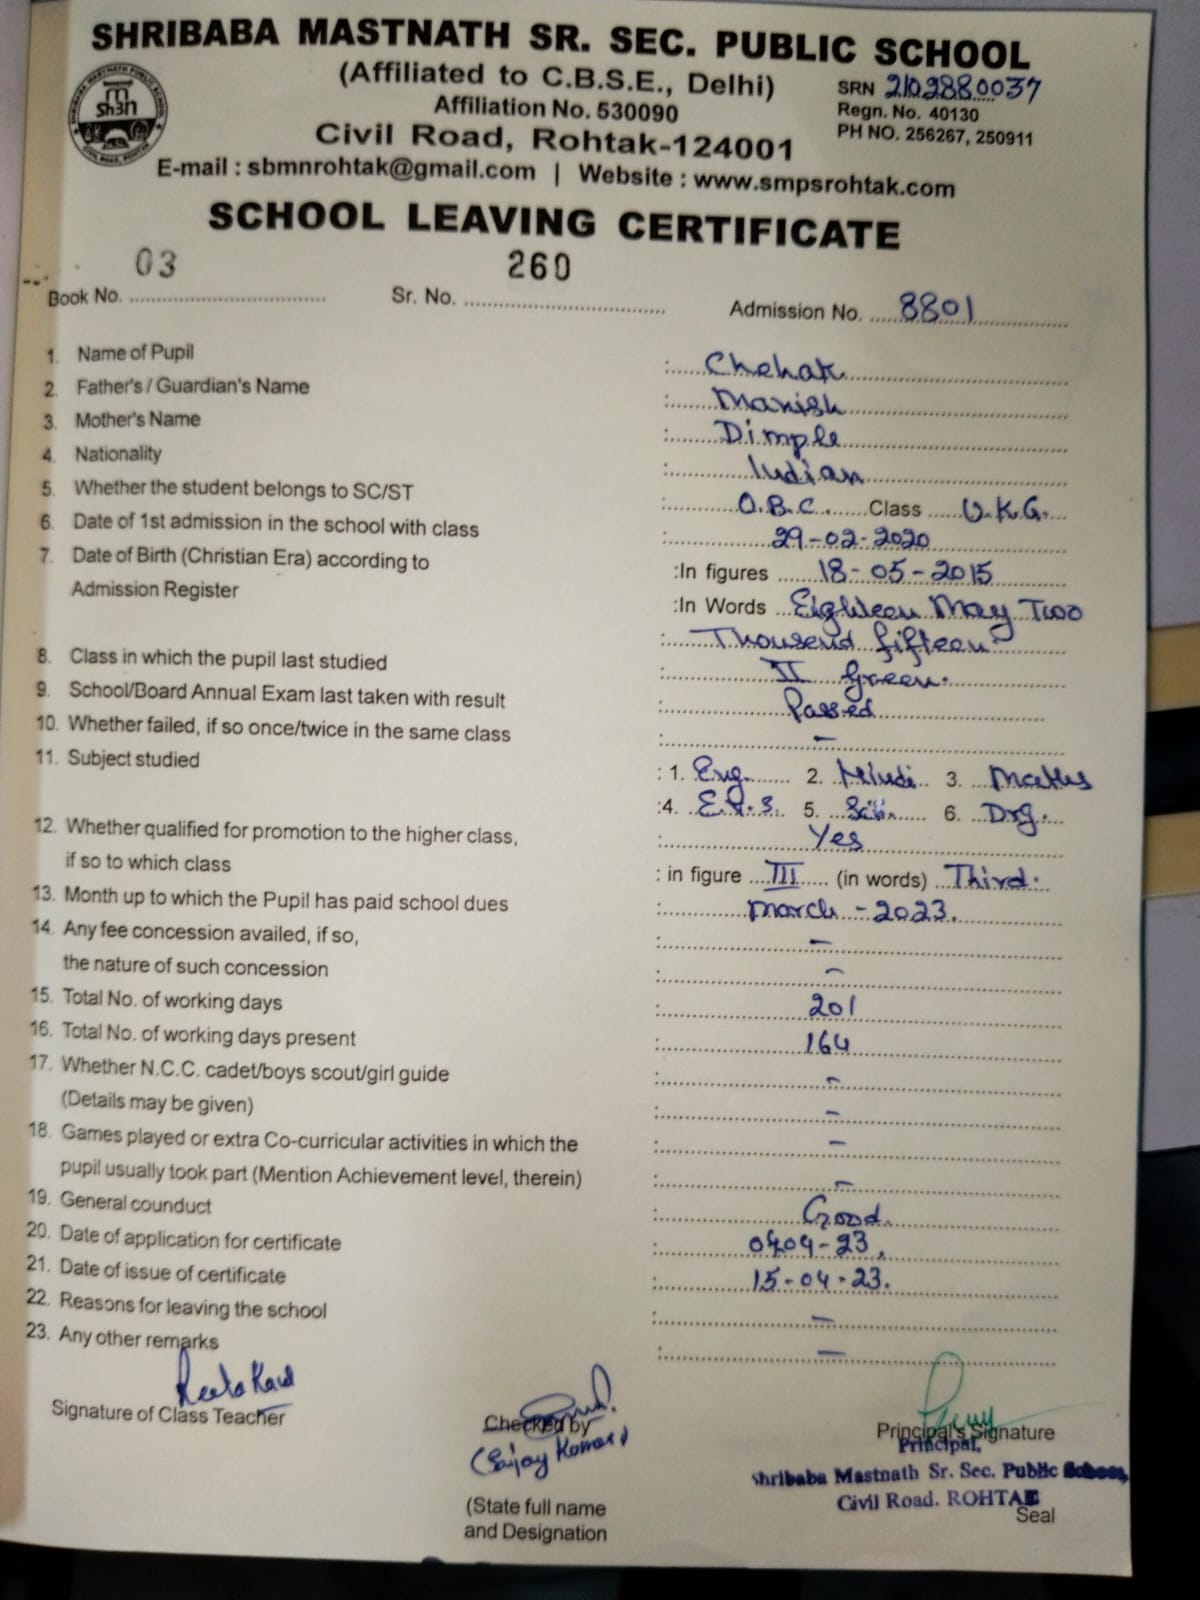 SHRIBABA MASTNATH SR. SEC. PUBLIC SCHOOL
(Affiliated to C.B.S.E., Delhi)
SRN 2102880037
Affiliation No. 530090
Regn. No. 40130
Civil Road, Rohtak-124001
PH NO. 256267, 250911
E-mail : sbmnrohtak@gmail.com | Website : www.smpsrohtak.com
SCHOOL LEAVING CERTIFICATE
Book No. 03 Sr. No. 260 Admission No. 8801
1. Name of Pupil : Chehak
2. Father's / Guardian's Name : Manish
3. Mother's Name : Dimple
4. Nationality : Indian
5. Whether the student belongs to SC/ST : O.B.C. Class U.K.G.
6. Date of 1st admission in the school with class : 29-02-2020
7. Date of Birth (Christian Era) according to :In figures 18-05-2015
Admission Register :In Words Eighteen May Two
: Thousend fifteen
8. Class in which the pupil last studied : II Green.
9. School/Board Annual Exam last taken with result : Passed
10. Whether failed, if so once/twice in the same class : –
11. Subject studied : 1. Eng. 2. Hindi 3. Maths
:4. E.V.S. 5. Sci. 6. Drg.
12. Whether qualified for promotion to the higher class, : Yes
if so to which class : in figure III (in words) Third.
13. Month up to which the Pupil has paid school dues : March - 2023.
14. Any fee concession availed, if so, : –
the nature of such concession : –
15. Total No. of working days : 201
16. Total No. of working days present : 164
17. Whether N.C.C. cadet/boys scout/girl guide : –
(Details may be given) : –
18. Games played or extra Co-curricular activities in which the : –
pupil usually took part (Mention Achievement level, therein) : –
19. General counduct : Good.
20. Date of application for certificate : 0404-23.
21. Date of issue of certificate : 15-04-23.
22. Reasons for leaving the school : –
23. Any other remarks : –
Signature of Class Teacher Checked by Principal's Signature
(Sanjay Kumar)
Principal,
Shribaba Mastnath Sr. Sec. Public School,
Civil Road. ROHTAK
(State full name
and Designation
Seal